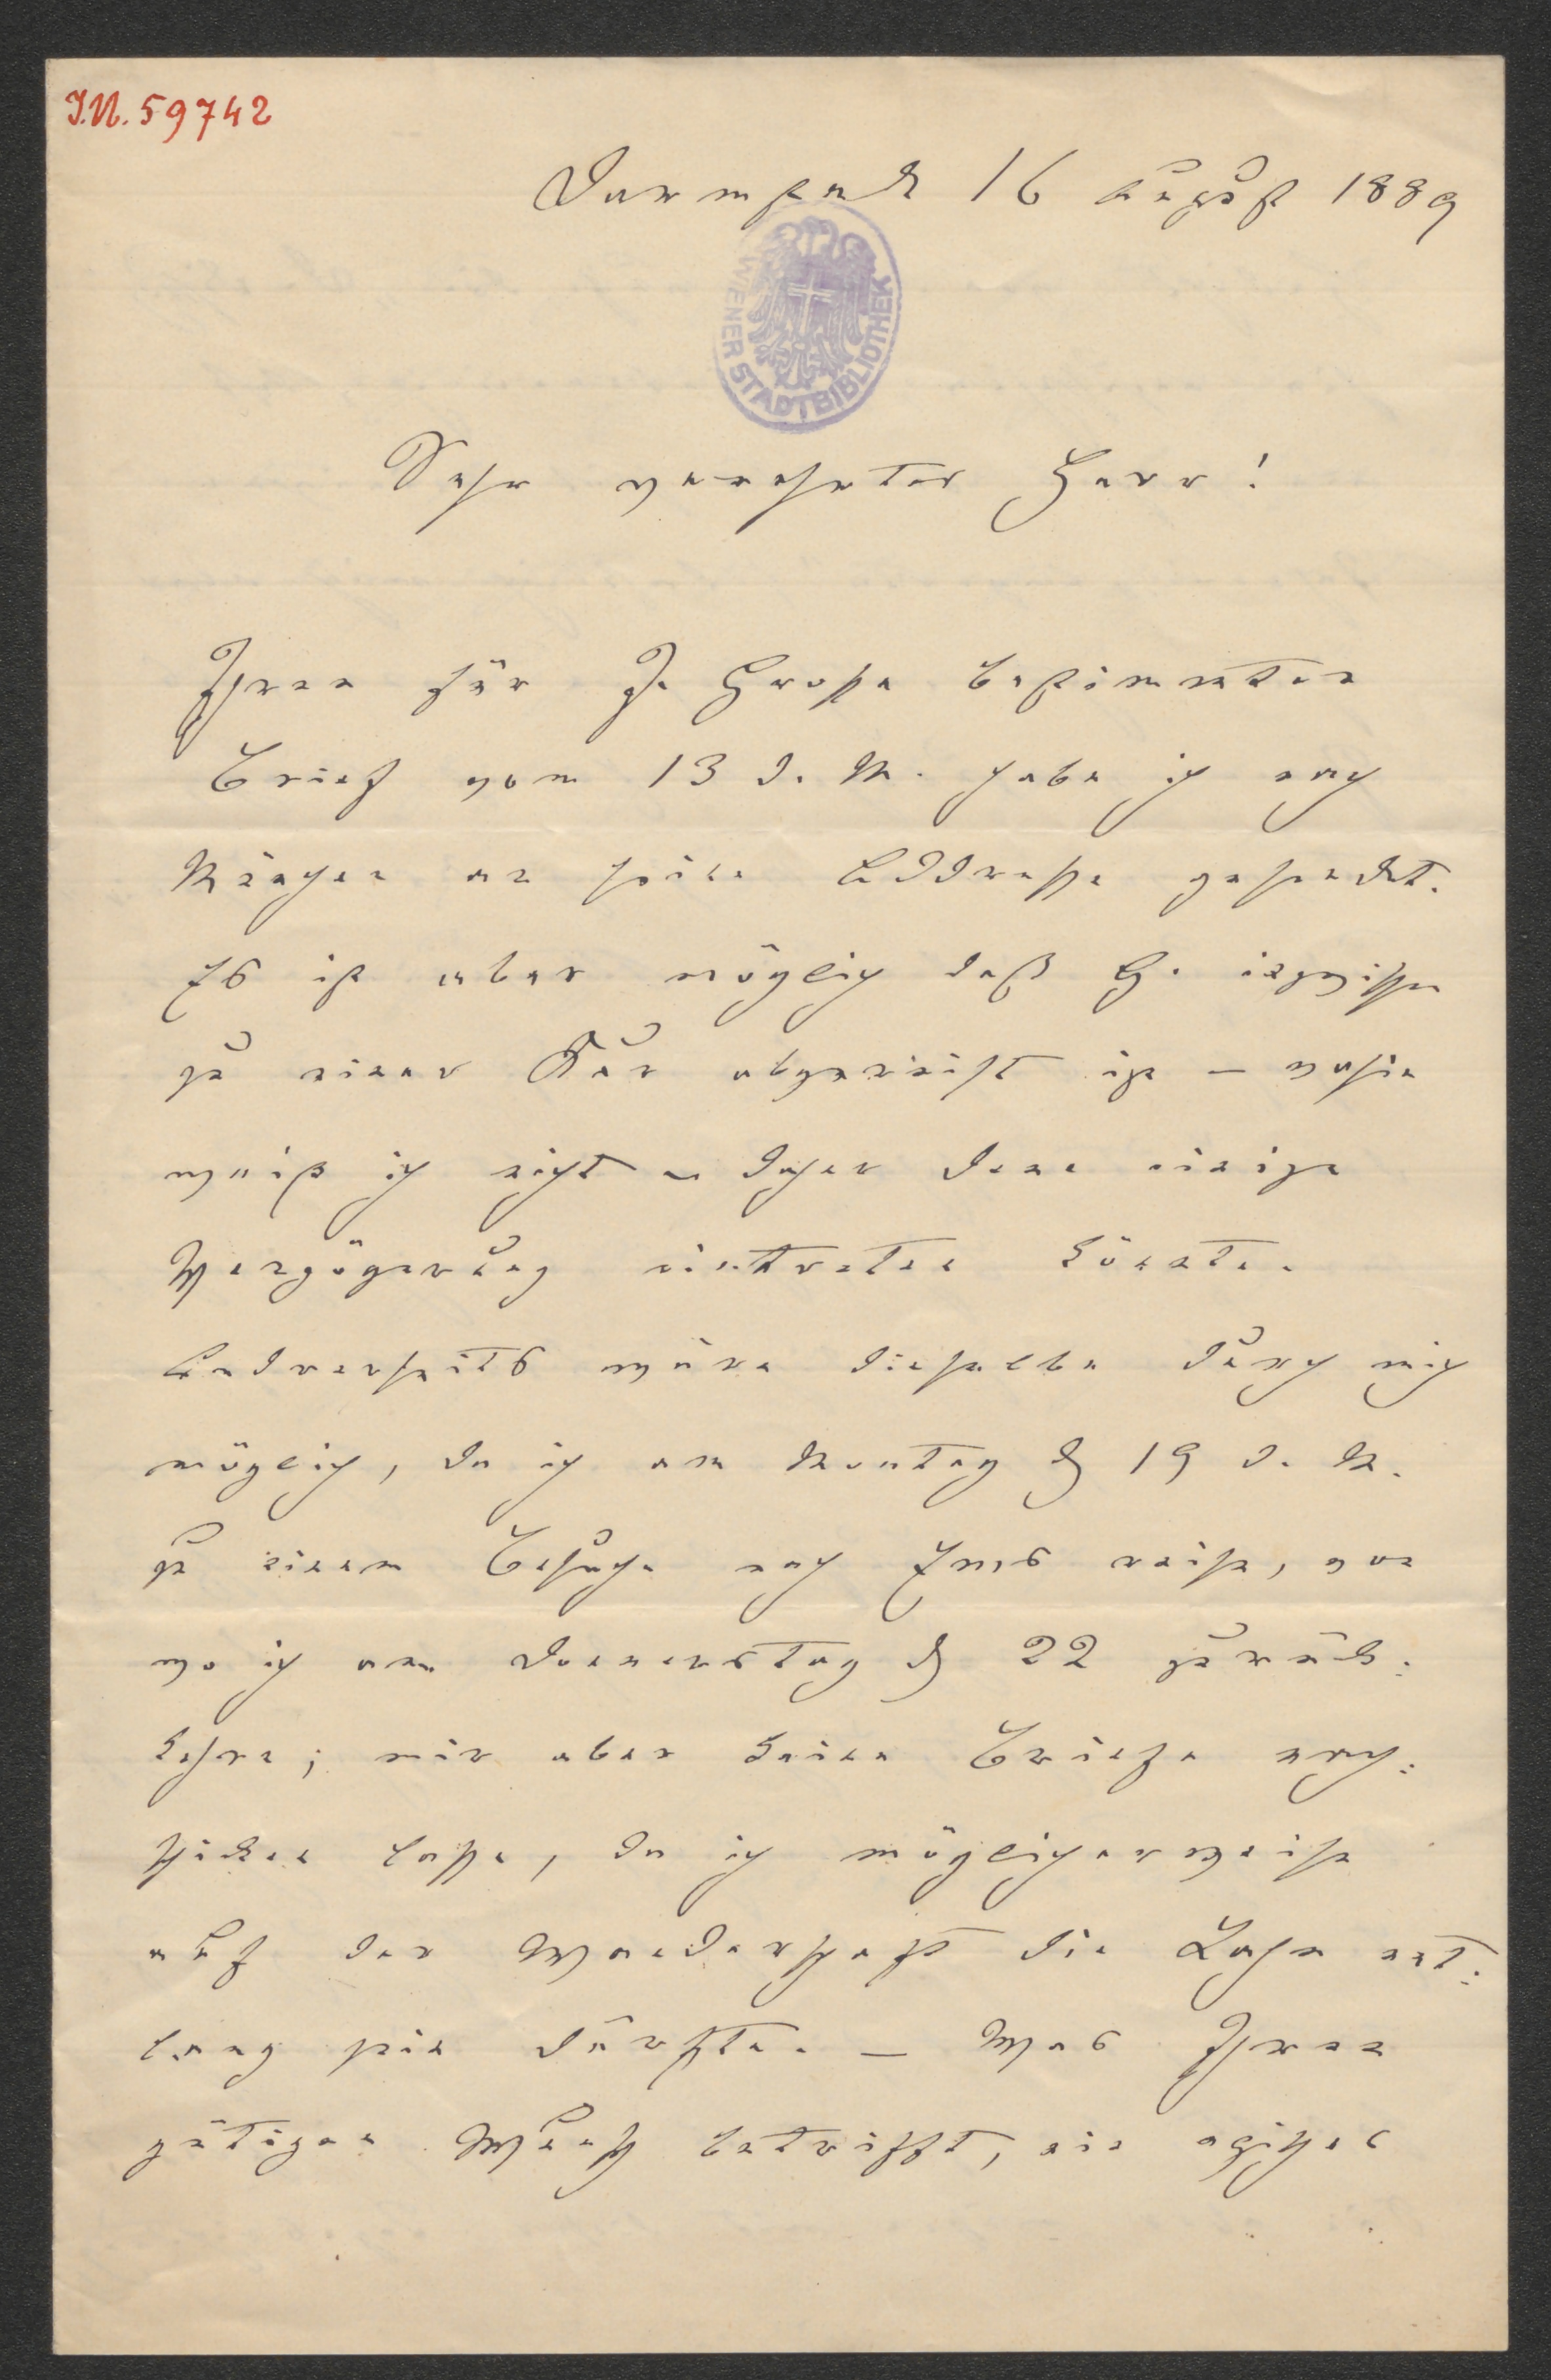 I.N. 59742
Darmstadt 16 August 1889
WIENER STADTBIBLIOTHEK
Sehr verehrter Herr!
Ihren für J. Grosse bestimmten
Brief vom 13 d. M. habe ich nach
München an seine Addresse gesendet.
Es ist aber möglich daß G. inzwischen
zu einer Kur abgereist ist – wohin
weiß ich nicht – daher denn einige
Verzögerung eintreten könnte.
Andrerseits wäre dieselbe durch mich
möglich, da ich am Montag d 19 d. M.
zu einem Besuche nach Ems reise, von
wo ich am Donnerstag d 22 zurück:
kehre; mir aber keine Briefe nach:
schicken lasse, da ich möglicherweise
auf der Wanderschaft die Lahn ent:
lang sein dürfte. – Was Ihren
gütigen Wunsch betrifft, ein episches